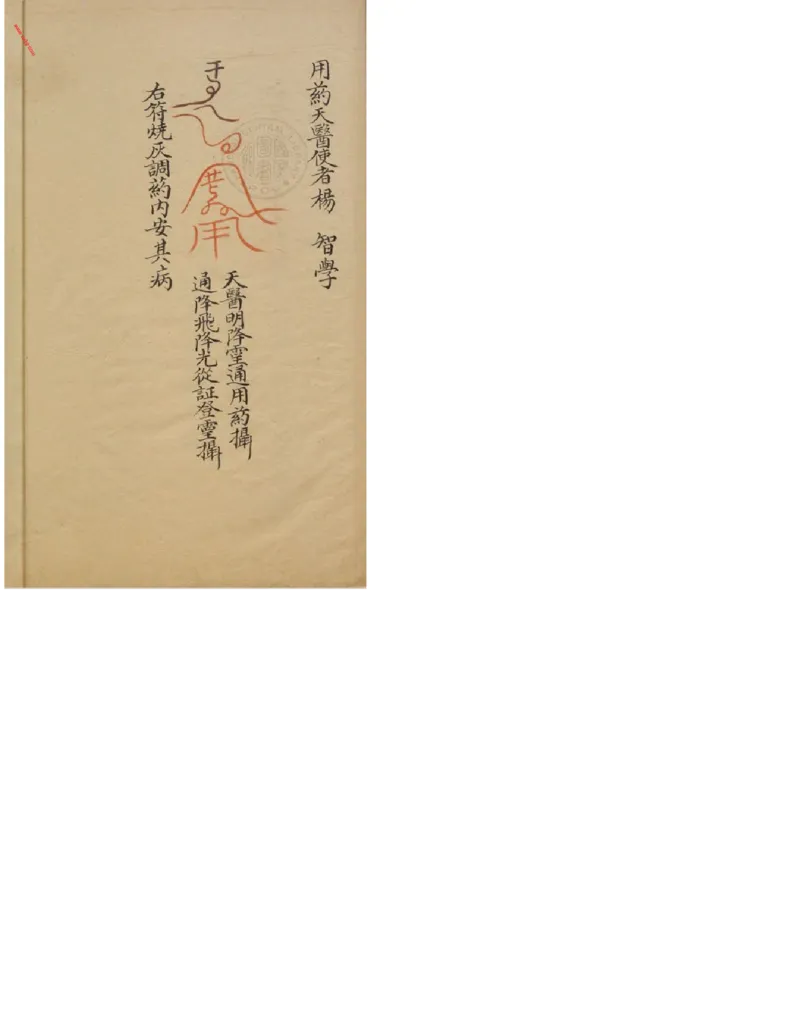 用葯天醫使者楊 智學
天醫明降霊通用葯攝
通降飛降光從証登霊攝
右符燒灰調葯内安其病